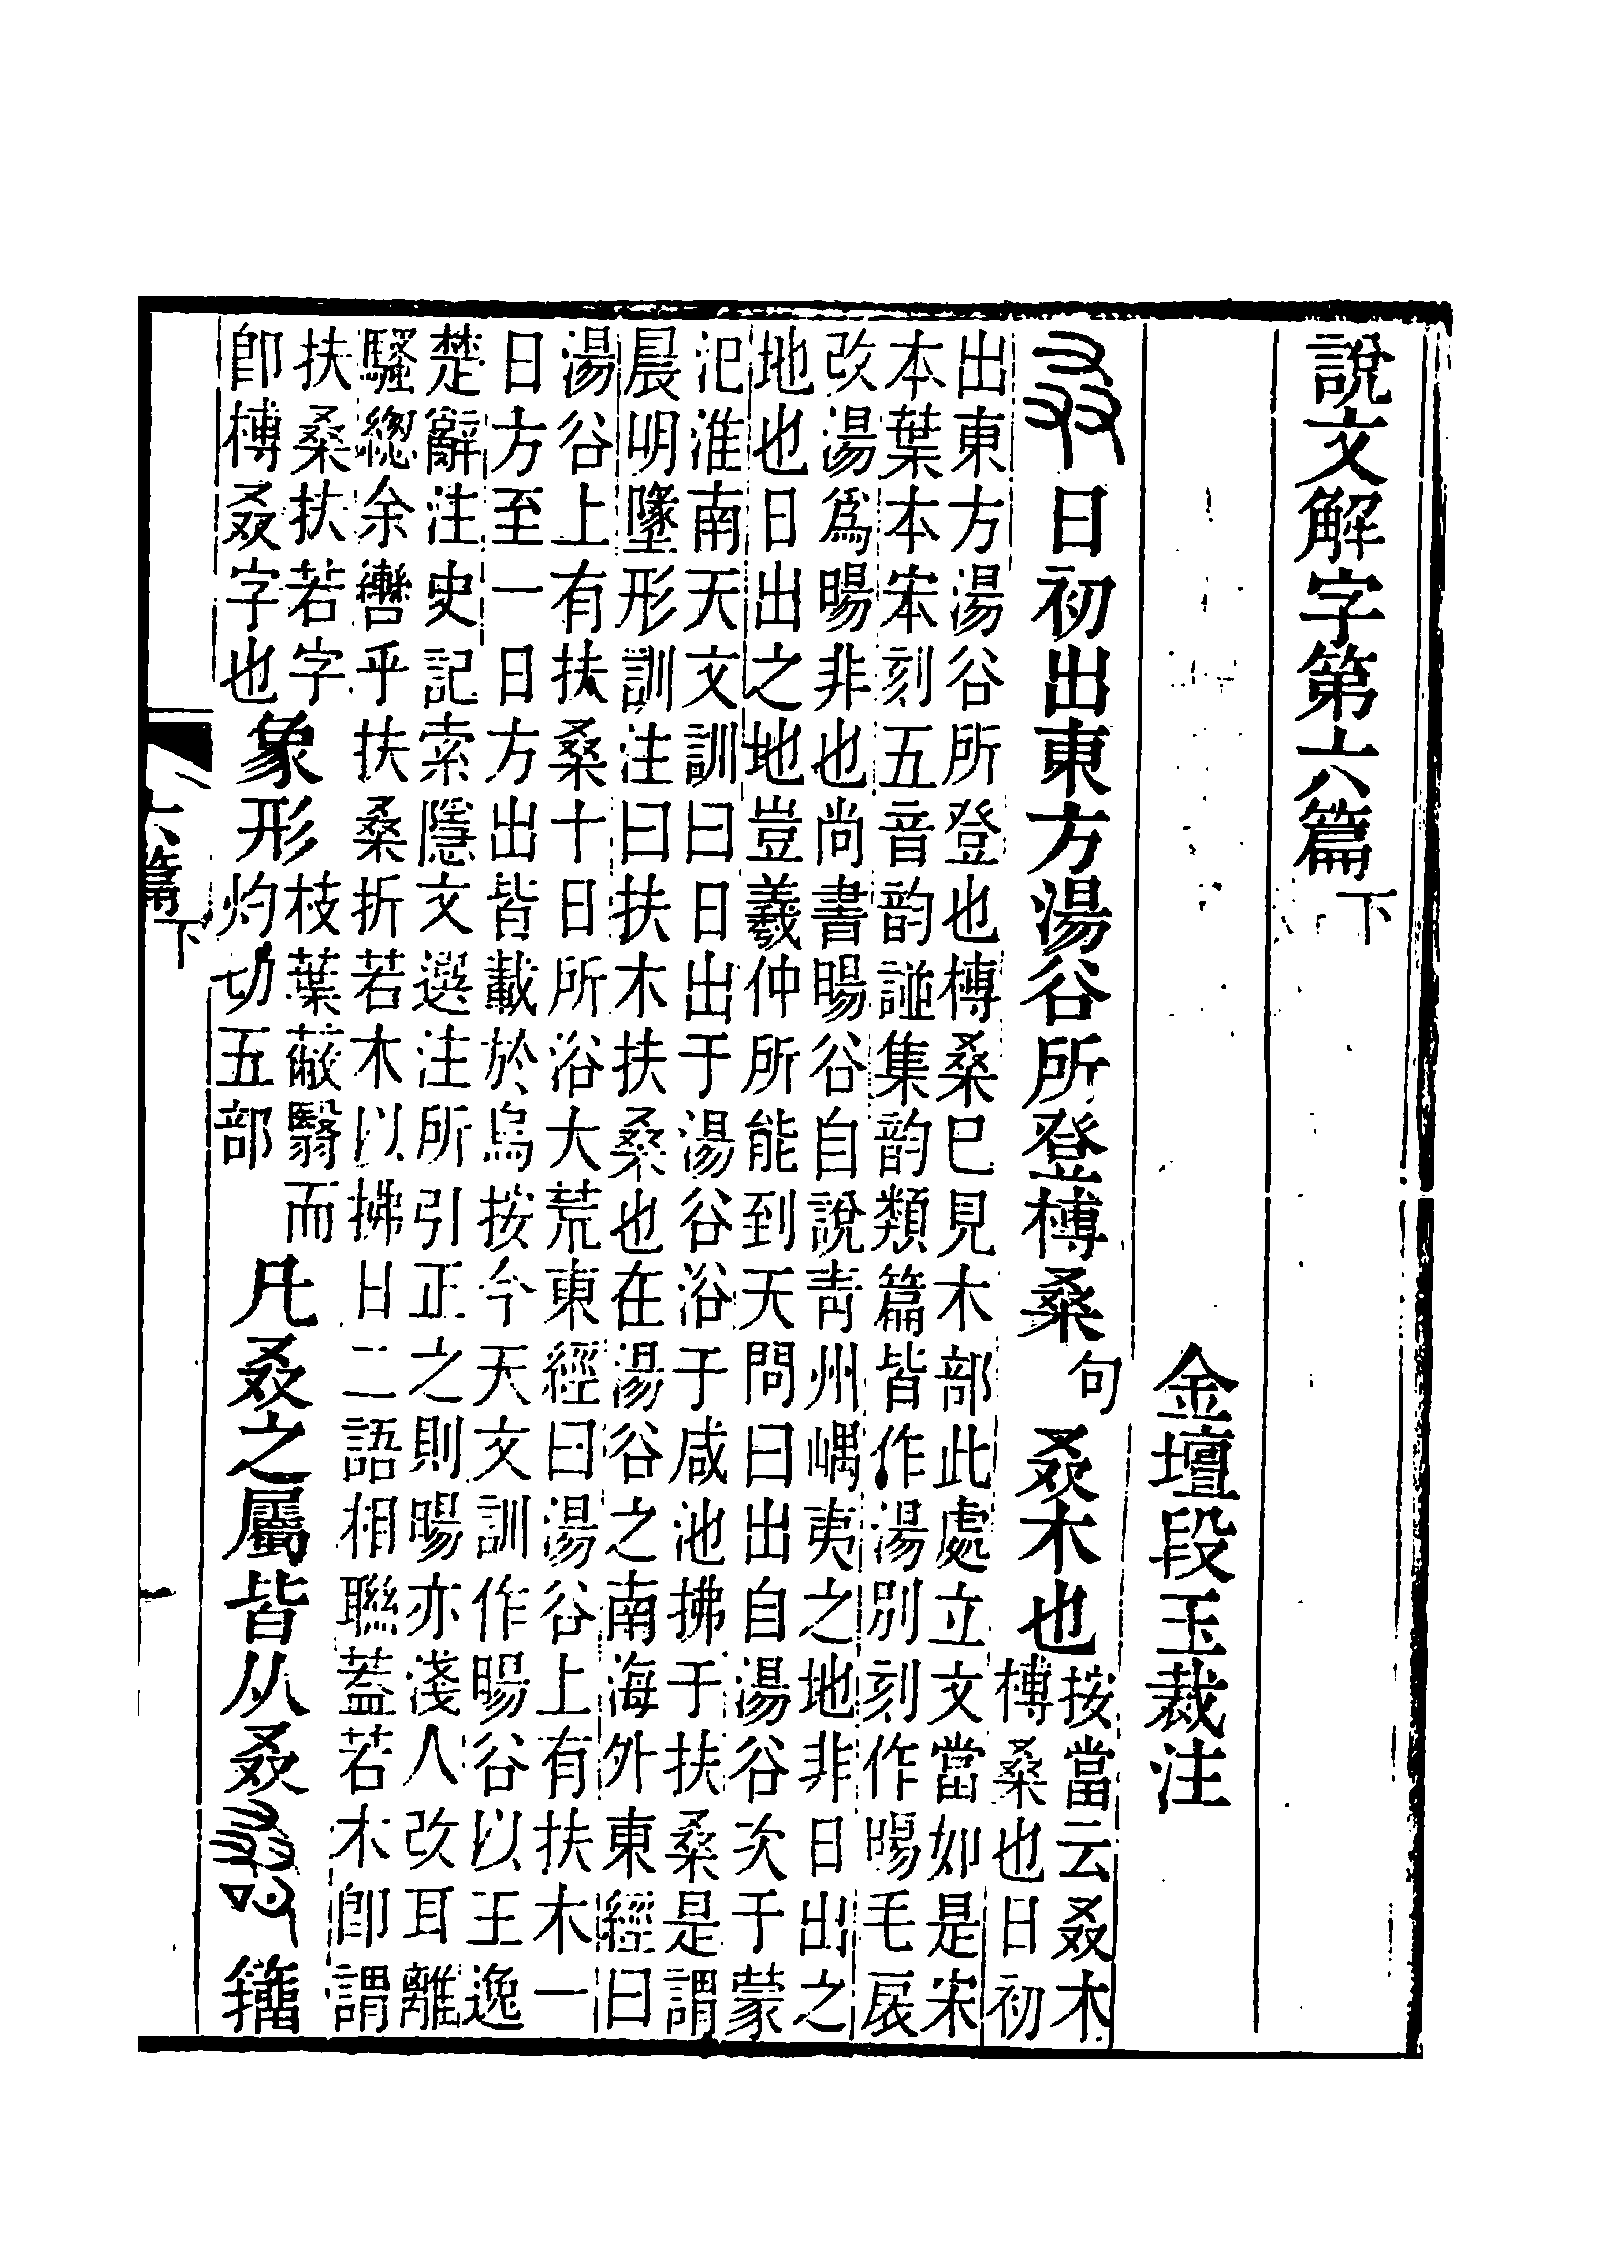 說文解字第六篇下
金壇段玉裁注
叒日初出東方湯谷所登榑桑句叒木也按當云叒木
榑桑也日初
出東方湯谷所登也榑桑巳見木部此處立文當如是宋
本葉本宋刻五音韵諩集韵類篇皆作湯別刻作暘毛扆
改湯爲暘非也尚書暘谷自說靑州嵎夷之地非日出之
地也日出之地豈羲仲所能到天問曰出自湯谷次于蒙
汜淮南天文訓曰日出于湯谷浴于咸池拂于扶桑是謂
晨明墬形訓注曰扶木扶桑也在湯谷之南海外東經曰
湯谷上有扶桑十日所浴大荒東經曰湯谷上有扶木一
日方至一日方出皆載於烏按今天文訓作暘谷以王逸
楚辭注史記索隱文選注所引正之則暘亦淺人改耳離
騷緫余轡乎扶桑折若木以拂日二語相聯葢若木卽謂
扶桑扶若字
卽榑叒字也
象形枝葉蔽翳而
灼切五部
凡叒之屬皆从叒籒
六篇下
一